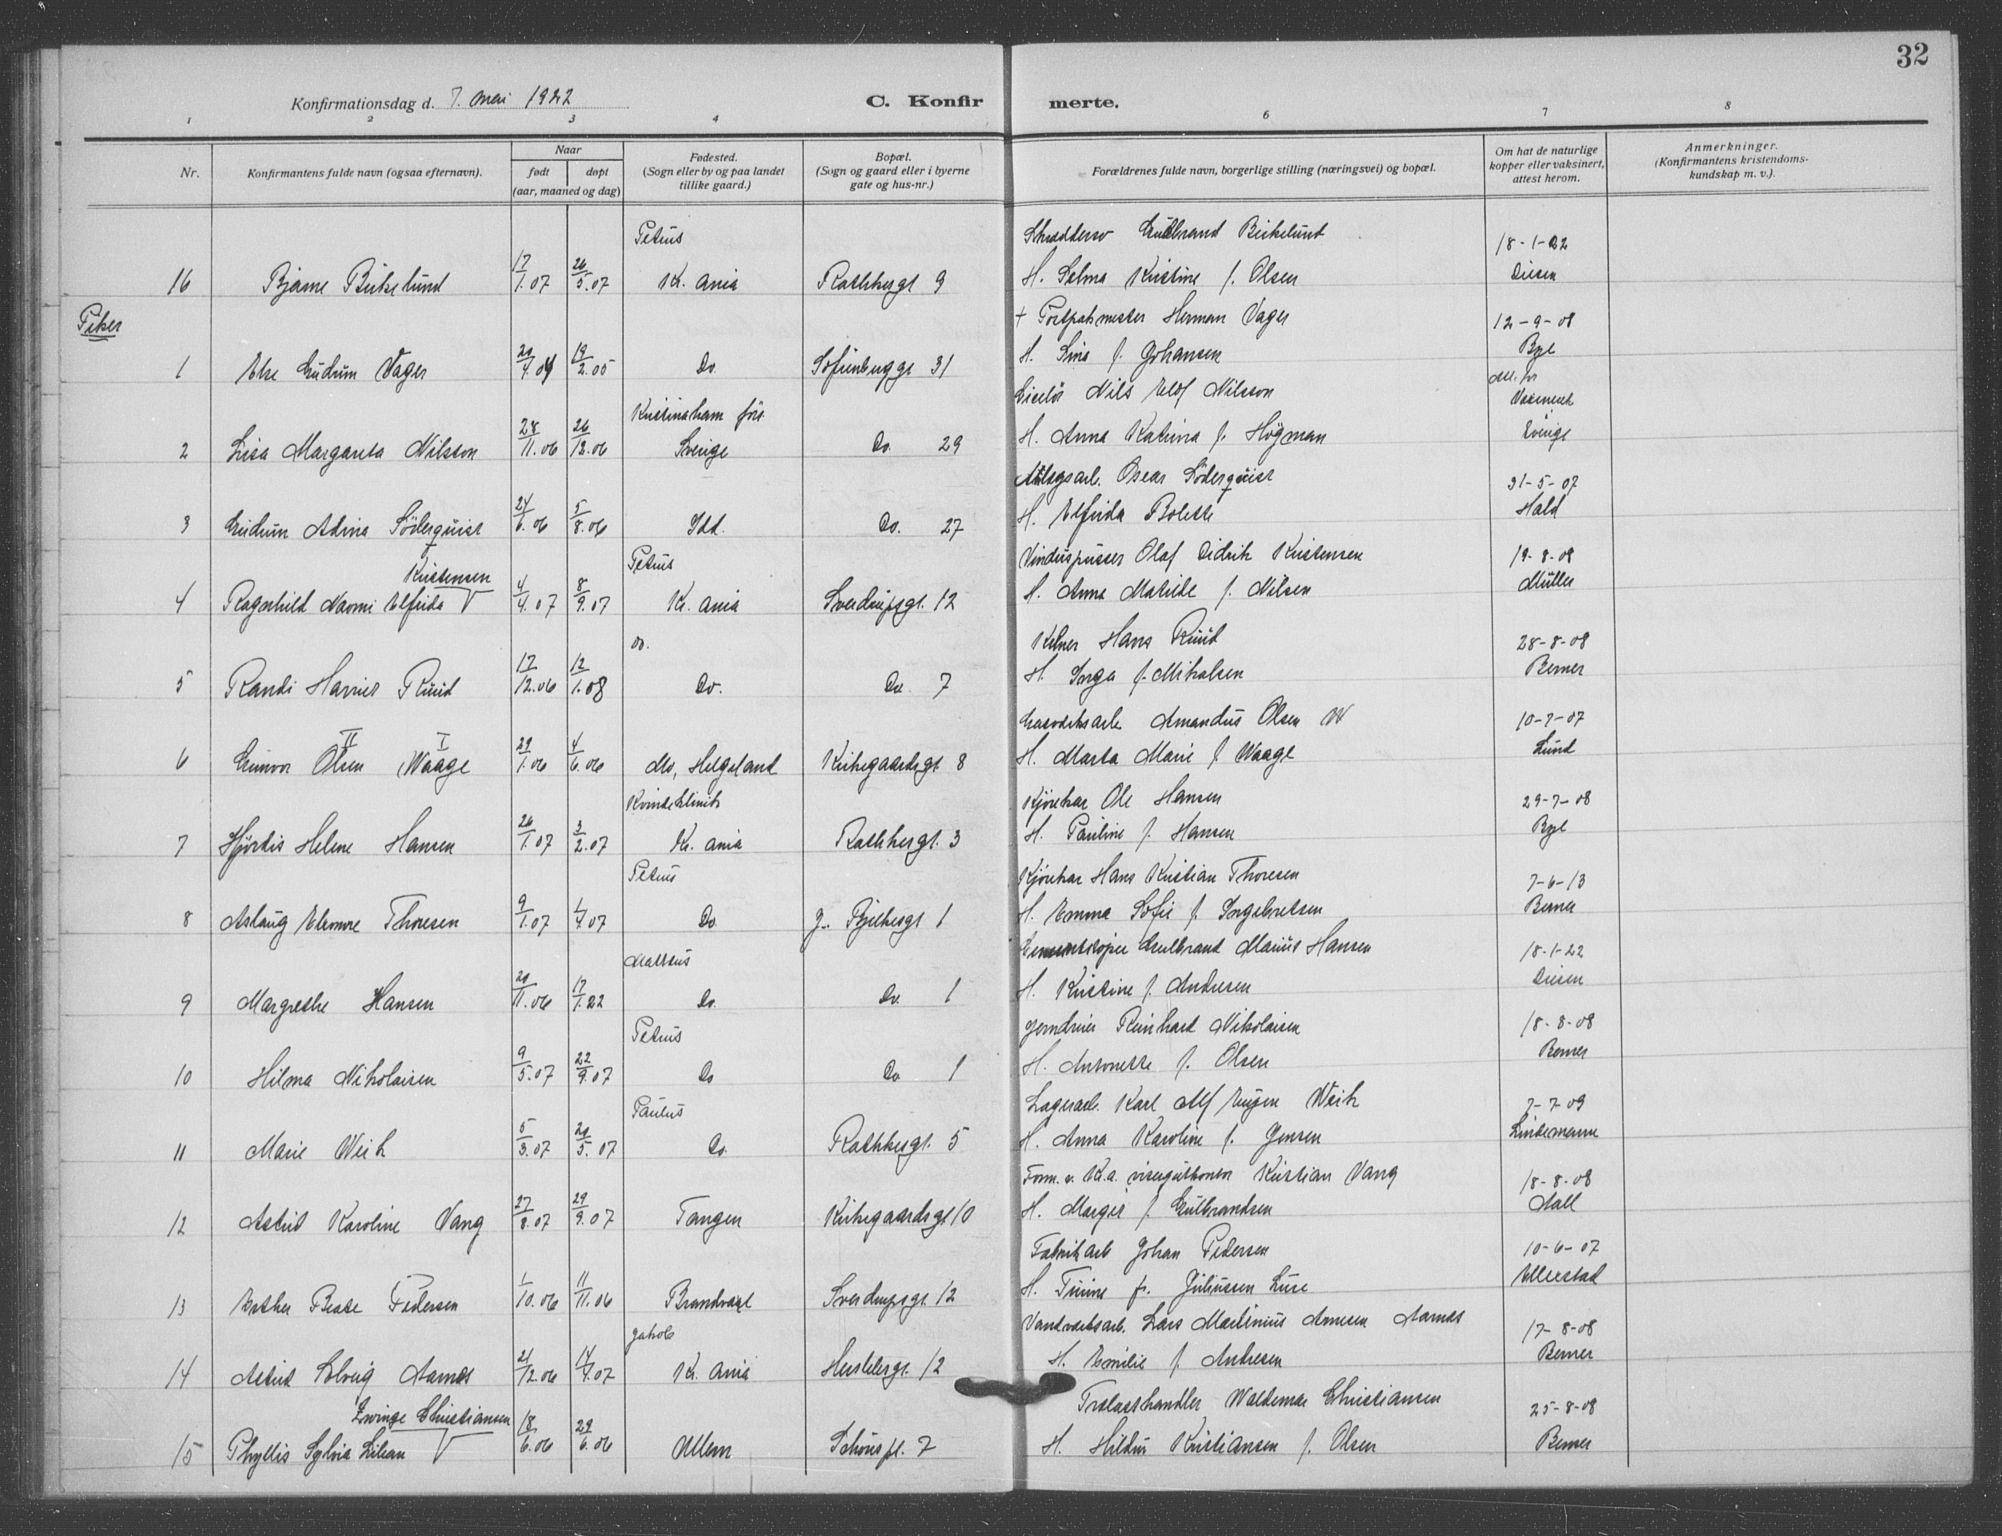 32
Konfirmationsdag d. 7. mai 1922 C. Konfir merte.
1 2 3 4 6 7 8
Nr. Konfirmantens fulde navn (ogsaa efternavn). Naar født døpt (aar, maaned og dag) Fødested. (Sogn eller by og paa landet tillike gaard.) Bopæl. (Sogn og gaard eller i byerne gate og hus-nr.) Forældrenes fulde navn, borgerlige stilling (næringsvei) og bopæl. Om hat de naturlige kopper eller vaksinert, attest herom. Anmerkninger. (Konfirmantens kristendoms-kundskap m. v.).
Petrus Gulbrand Birkelund 18-1-22
16 Bjarne Birkelund 17/1.07 26/5.07 Kr.ania Rathkesgt 9 H. Selma Kristine f. Olsen Diesen
Piker
+ Postpakmester Herman Vager 12-9-08
1 Else Gudrun Vager 20/4.04 19/2.05 Do. Sofienberggt 31 H. Lina f. Johansen Bye
Nils Olof Nilsson
Kristinaham förs.
2 Lisa Margareta Nilsson 28/11.06 26/12.06 Sverige Do. 29 H. Anna Katrina f. Högman Sverige
Anlegsarb. Oscar Söderquist 31-5-07
3 Gudrun Advia Söderquist 24/6.06 5/8.06 Idd. Do. 27 H. Elfrida Bolette Hald
Kristensen Petrus Vinduspusser Olaf Didrik Kristensen 19-8-08
4 Ragnhild Naomi Elfrida V 4/4.07 8/9.07 Kr.ania Sverdrupsgt. 12 H. Anna Matilde f. Nilsen Müller
Do. Kelner Hans Ruud 28-8-08
5 Randi Harriet Ruud 17/12.06 12/1.08 Do. Do. 7 H. Inga f. Mikalsen Berner
Gasverksarb. Amandus Olsen W 10-7-07
II I
6 Gunvor Olsen Waage 29/1.06 4/6.06 Mo, Helgeland Kirkegaardsgt. 8 H. Marta Marie f. Waage Lund
Kvindeklinik Kjørekar Ole Hansen 29-7-08
7 Hjørdis Helene Hansen 26/1.07 3/2.07 Kr.ania Rathkesgt. 3 H. Pauline f. Hansen Bye
Petrus Kjørekar Hans Kristian Thoresen 7-6-13
8 Aslaug Eleonore Thoresen 9/1.07 1/4.07 Do. J. Bjelkesgt 1 H. Emma Sofie f. Ingebretsen Berner
Matteus Gulbrand Marius Hansen 18-1-22
9 Margrethe Hansen 20/11.06 17/1.22 Do. Do. 1 H. Kristine f. Andresen Diesen
Petrus Jerndreier Reinhard Nikolaisen 18-8-08
10 Hilma Nikolaisen 9/5.07 22/9.07 Do Do 1 H. Antonette f. Olsen Berner
Paulus Lagerarb. Karl Alf Eugen Weik 7-7-09
11 Marie Weik 5/3.07 20/5.07 Do. Rathkesgt. 5 H. Anna Karoline f. Jensen Lindemann
Form. v. Kr.a. visergutkontor Kristian Vang 18-8-08
12 Astrid Karoline Vang 27/8.07 29/9.07 Tangen Kirkegaardsgt 10 H. Margit f. Gulbrandsen Aall
Fabrikarb Johan Pedersen 10-6-07
13 Esther Beate Pedersen 1/10.06 11/11.06 Brandval Sverdrupsgt. 12 H. Tuine fr. Juliussen Lure Ullerstad
Jakob Vandverksarb. Lars Martinius Arnesen Aarnes 17-8-08
14 Astrid Solveig Aarnes 21/12.06 14/4.07 Kr.ania Herslebsgt. 12 H. Emilie f. Andresen Berner
Zwinge Christiansen Trælasthandler Waldemar Christiansen 25-8-08
15 Phyllis Sylvia Lilian V 18/6.06 29/6.06 Ullern Schous pl. 7 H. Hildur Kristiansen f. Olsen Berner